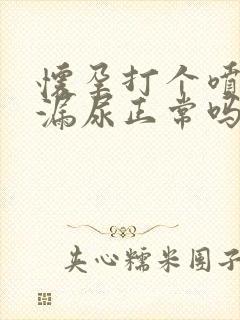 懷孕打个噴
漏尿正常吗
夹心糯米团子